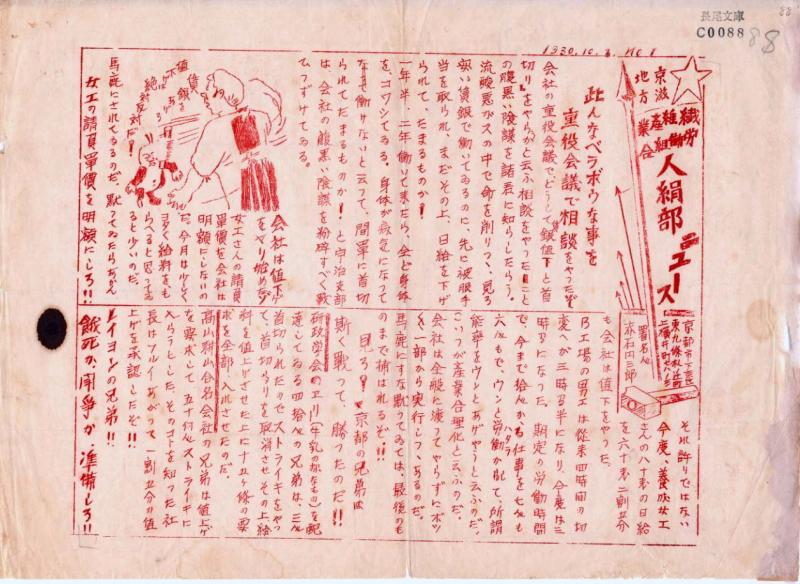 長尾文庫
C0088
88
88
1930.10.3. NO 1
京滋地方
繊維産業
労働組合
人絹部ニュース
京都市下京区
東九條
署名人
赤石内三郎
此んなベラボウな事を
重役会議で相談をやったぞ
会社の重役会議で、どうして賃銀値下と首
切りをやらかと云ふ相談をやったこと
の腹黒い陰謀を諸君に知らしたらう。
流酸悪ガスの中で命を削りつゝ、見ろ
安い賃銀で働いてゐるのに、先に被服手
当を取られ、まだその上、日給を下げ
られて、たまるものか!
一年半、二年働いて来たら、全部身体
をコワシてゐる。身体が病気になって
なまで働けないと云って、簡單に首切
られてたまるものか! と宇治支部
は、会社の腹黒い陰謀を粉砕すべく戦
ひつずけてゐる。
賃銀値下げ
絶対反対だ!
会社は値下げ
をやり始めた
女工さんの請負
單價を会社は
明額にしないの
だ、今月は少しく
ヨタく給料をも
らへると思ってゐ
ると少いのだ。
馬鹿にされてゐるのだ默ってゐたらあかん
女工の請負單價を明額にしろ!!
それ許りではない
今度、養成女工
さんの八十銭の日給
を六十銭、二割五分
も会社は値下をやった。
B工場の男工は従来四時間の切
変へが三時間半になり、今度は三
時間になった。期定の労働時間
で、今まで拾んかゝる仕事を七んも
六んもで、ウンと労働かして、所謂
能率をウンとあげやうと云ふのだ。
こいつが産業合理化と云ふのだ。
会社は全般に渡ってやらずにボツ
く一部から実行しつゝあるのだ。
馬鹿にすな默ってゐては、最後のも
のまで捕はれるぞ!!
見ろ! 京都の兄弟は
斯く戦って、勝つたのだ!!
研政学会のエリー(牛乳の如なもの)を配
達してゐる四拾人の兄弟は、三人
首切られたのでストライキをやっ
て、首切りを取消させその上給
料を値上げさせた上に十五ヶ條の要
求を全部入れさせたのだ。
高山耕山合名会社の兄弟は値上げ
を要求して五十何人ストライキに
入らうとした。そのコトを知った社
長はフルイあがって一割五分の値
上げを承認したぞ!!
レイヨンの兄弟!!
餓死か、闘爭か、準備しろ!!